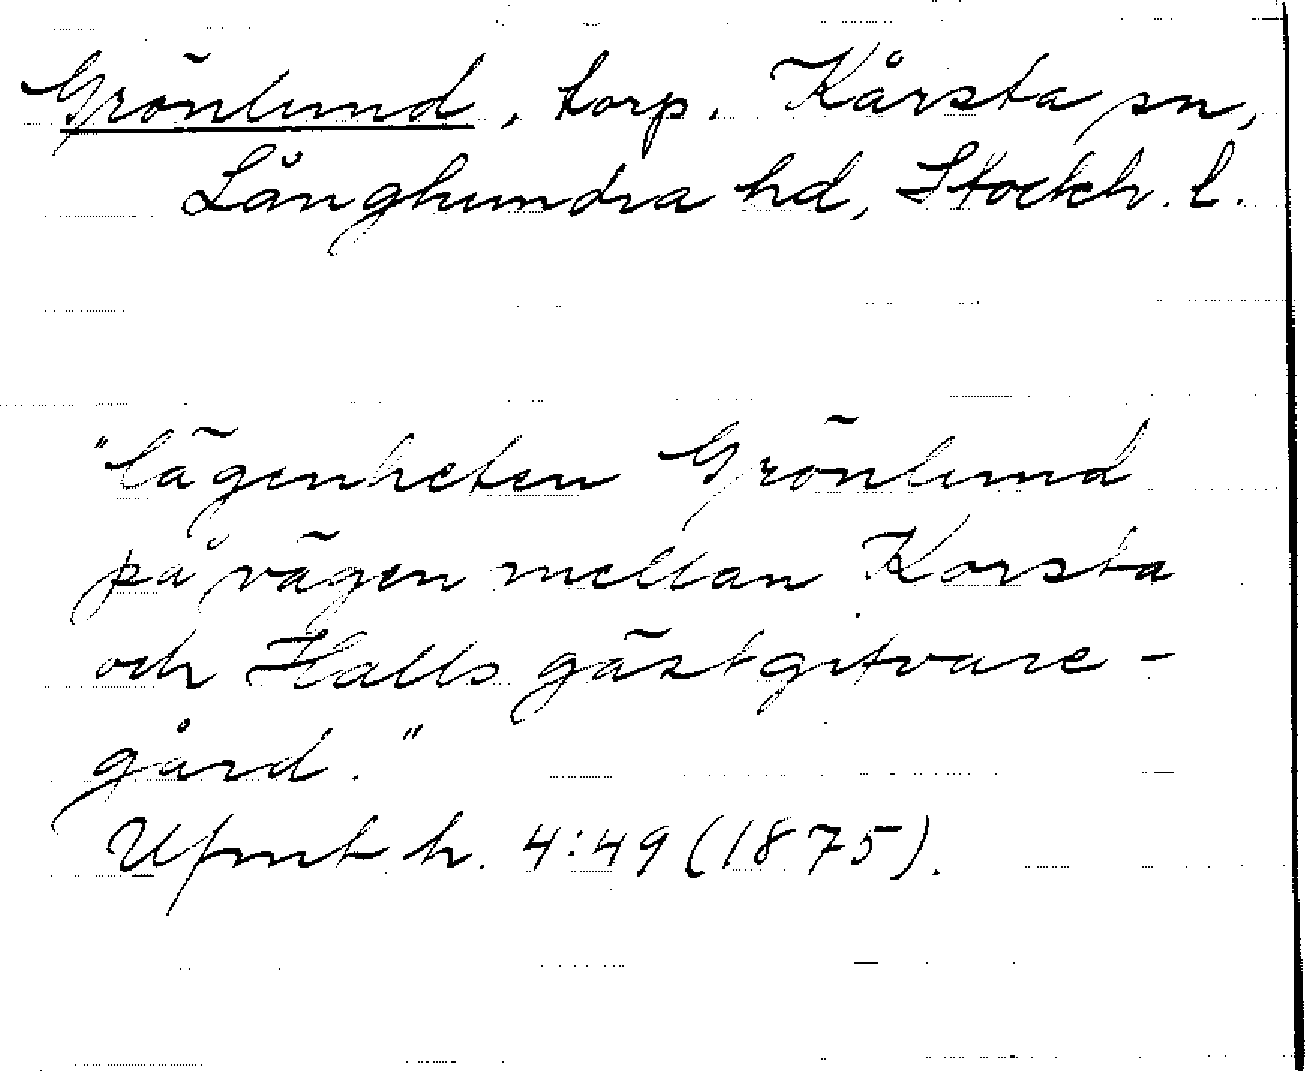 Grönlund, torp. Kårsta sn,
Långhundra hd, Stockh. l.
"lägenheten Grönlund
på vägen mellan Korsta
och Halls gästgifvare-
gård."
Ufmt h. 4:49 (1875).